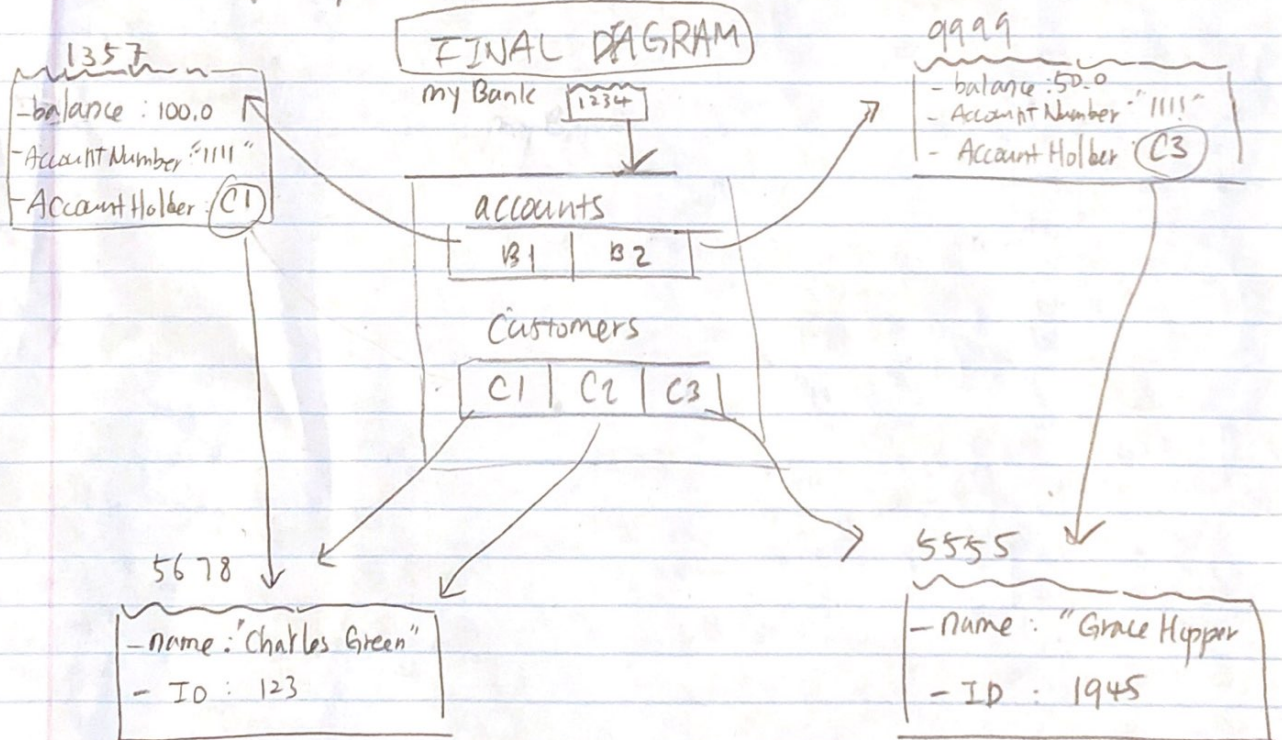 FINAL DIAGRAM
1357
-balance : 100.0
-Account Number "1111"
-Account Holder : C1
my Bank 1234
9999
- balance : 50.0
- Account Number "1111"
- Account Holber C3
accounts
B1 B2
Customers
C1 C2 C3
5678
-name : "Charles Green"
- ID : 123
5555
-name : "Grace Hopper
-ID : 1945